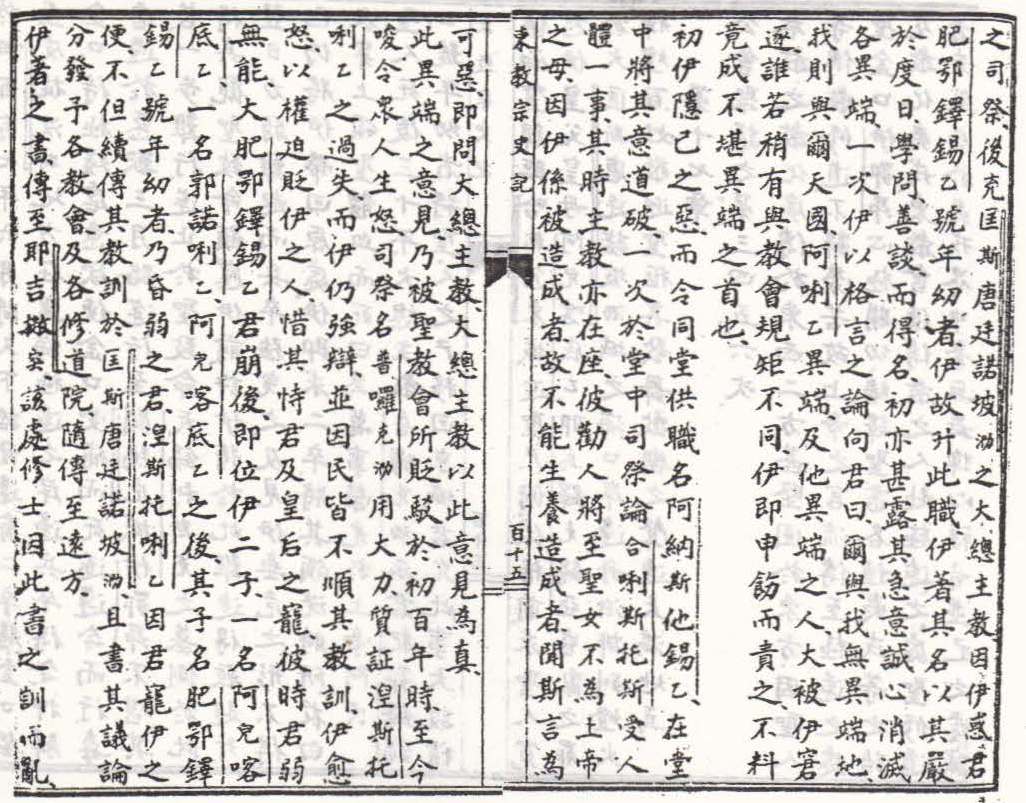 之司祭、後充匡斯唐廷諾坡泐之大總主教、因伊惑君
肥鄂鐸錫乙號年幼者、伊故升此職、伊著其名、以其嚴
於度日、學問、善談、而得名、初亦甚露其急意誠心消滅
各異端、一次伊以格言之論向君曰、爾與我無異端地、
我則與爾天國、阿唎乙異端、及他異端之人、大被伊窘
逐、誰若稍有與教會規矩不同、伊即申飭而責之、不料
竟成不堪異端之首也、
初伊隱己之惡、而令同堂供職名阿納斯他錫乙、在堂
中將其意道破、一次於堂中司祭論合唎斯托斯受人
體一事、其時主教亦在座、彼勸人將至聖女不為上帝
之母、因伊係被造成者、故不能生養造成者、聞斯言為
東教宗史記
百十五
可惡、即問大總主教、大總主教以此意見為真、
此異端之意見、乃被聖教會所貶駁於初百年時、至今
唆令眾人生怒、司祭名普囉克泐、用大力、質証湼斯托
唎乙之過失、而伊仍強辯、並因民皆不順其教訓、伊愈
怒、以權迫貶伊之人、惜其恃君及皇后之寵、彼時君弱
無能、大肥鄂鐸錫乙君崩後、即位伊二子、一名阿兒喀
底乙、一名郭諾唎乙、阿兒喀底乙之後、其子名肥鄂鐸
錫乙號年幼者、乃昏弱之君、湼斯托唎乙因君寵伊之
便、不但續傳其教訓於匡斯唐廷諾坡泐、且書其議論
分發予各教會、及各修道院、隨傳至遠方、
伊著之書、傳至耶吉撒突、該處修士因此書之訓而亂、